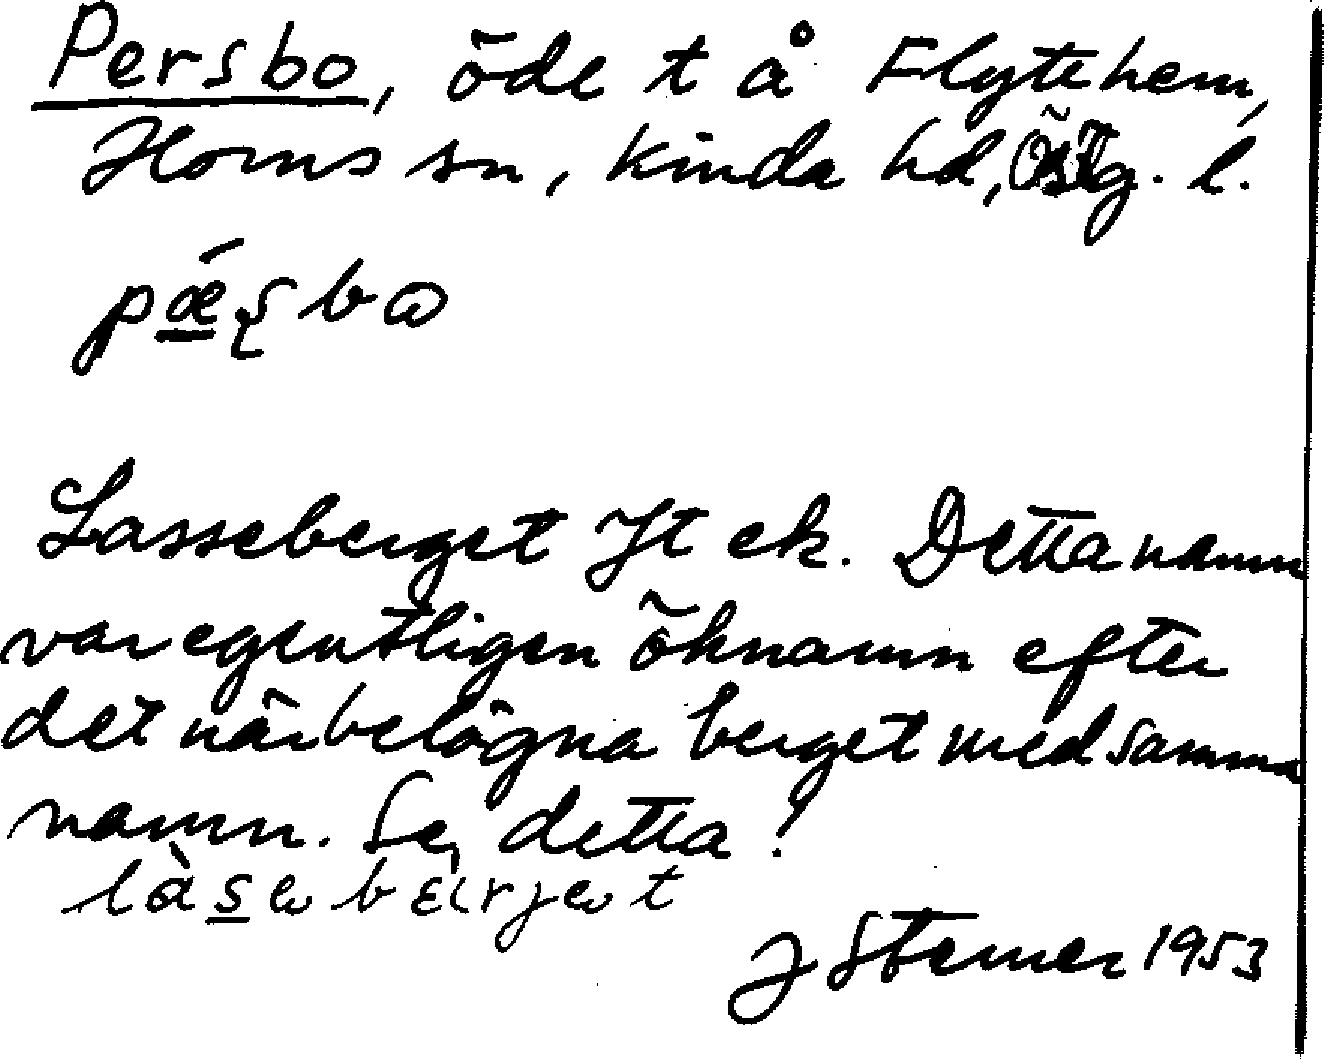 Persbo, öde t å Flytthem,
Horns sn, Kinda hd, Östg. l.
pǽʂbω
Lasseberget Jt ek. Detta namn
var egentligen öknamn efter
det närbelägna berget med samma
namn. Se detta!
J Sterner 1953